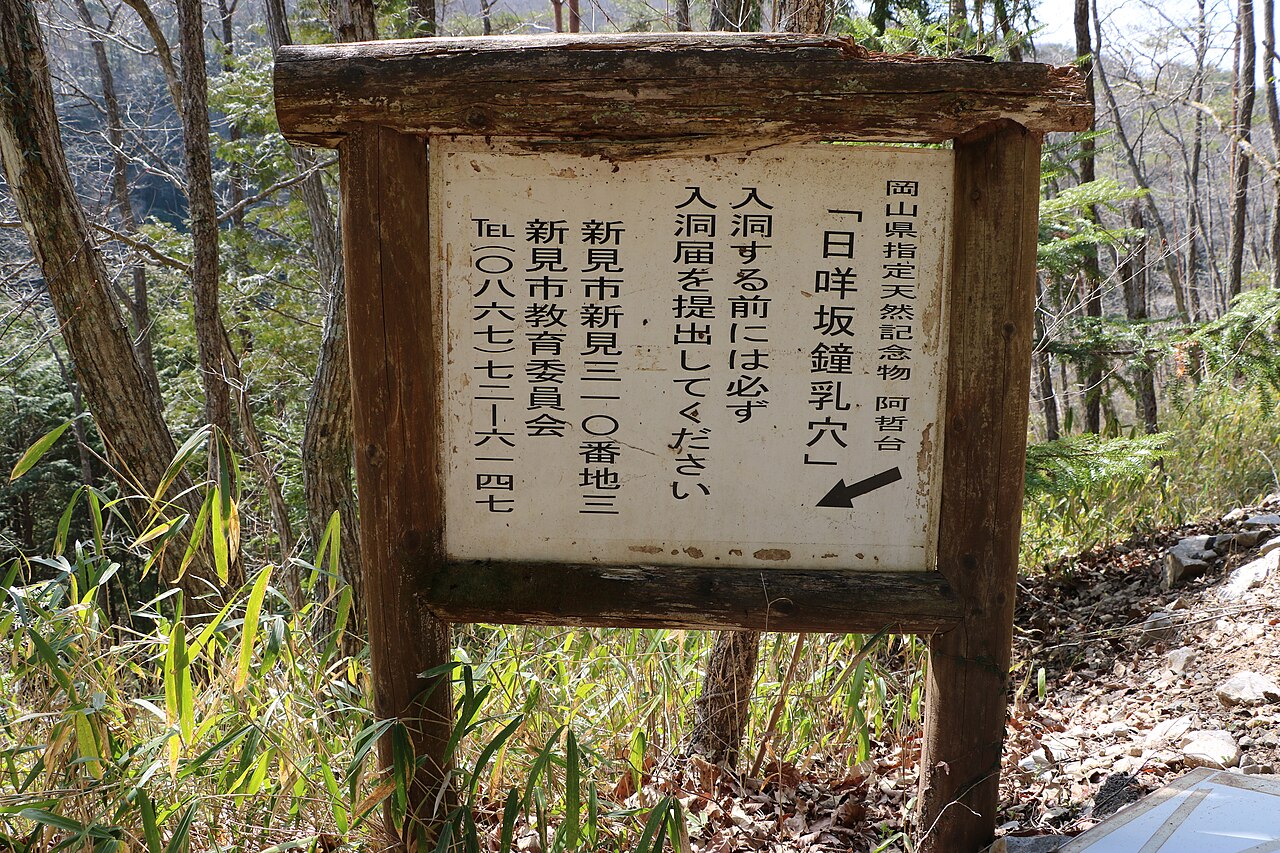 岡山県指定天然記念物 阿哲台
「日咩坂鐘乳穴」
入洞する前には必ず
入洞届を提出してください
新見市新見三一〇番地三
新見市教育委員会
TEL(〇八六七)七二ー六一四七